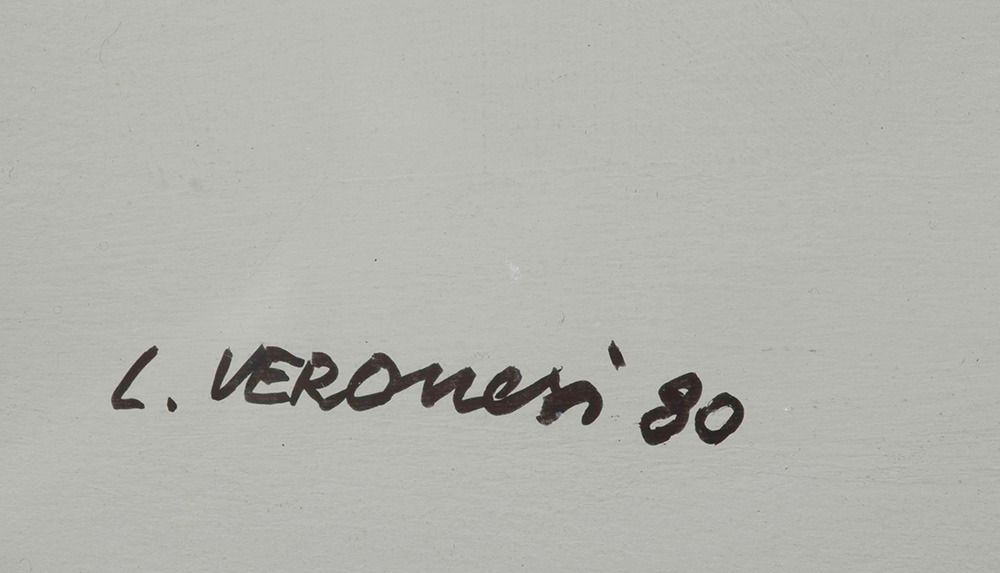 L. VEROnesi 80